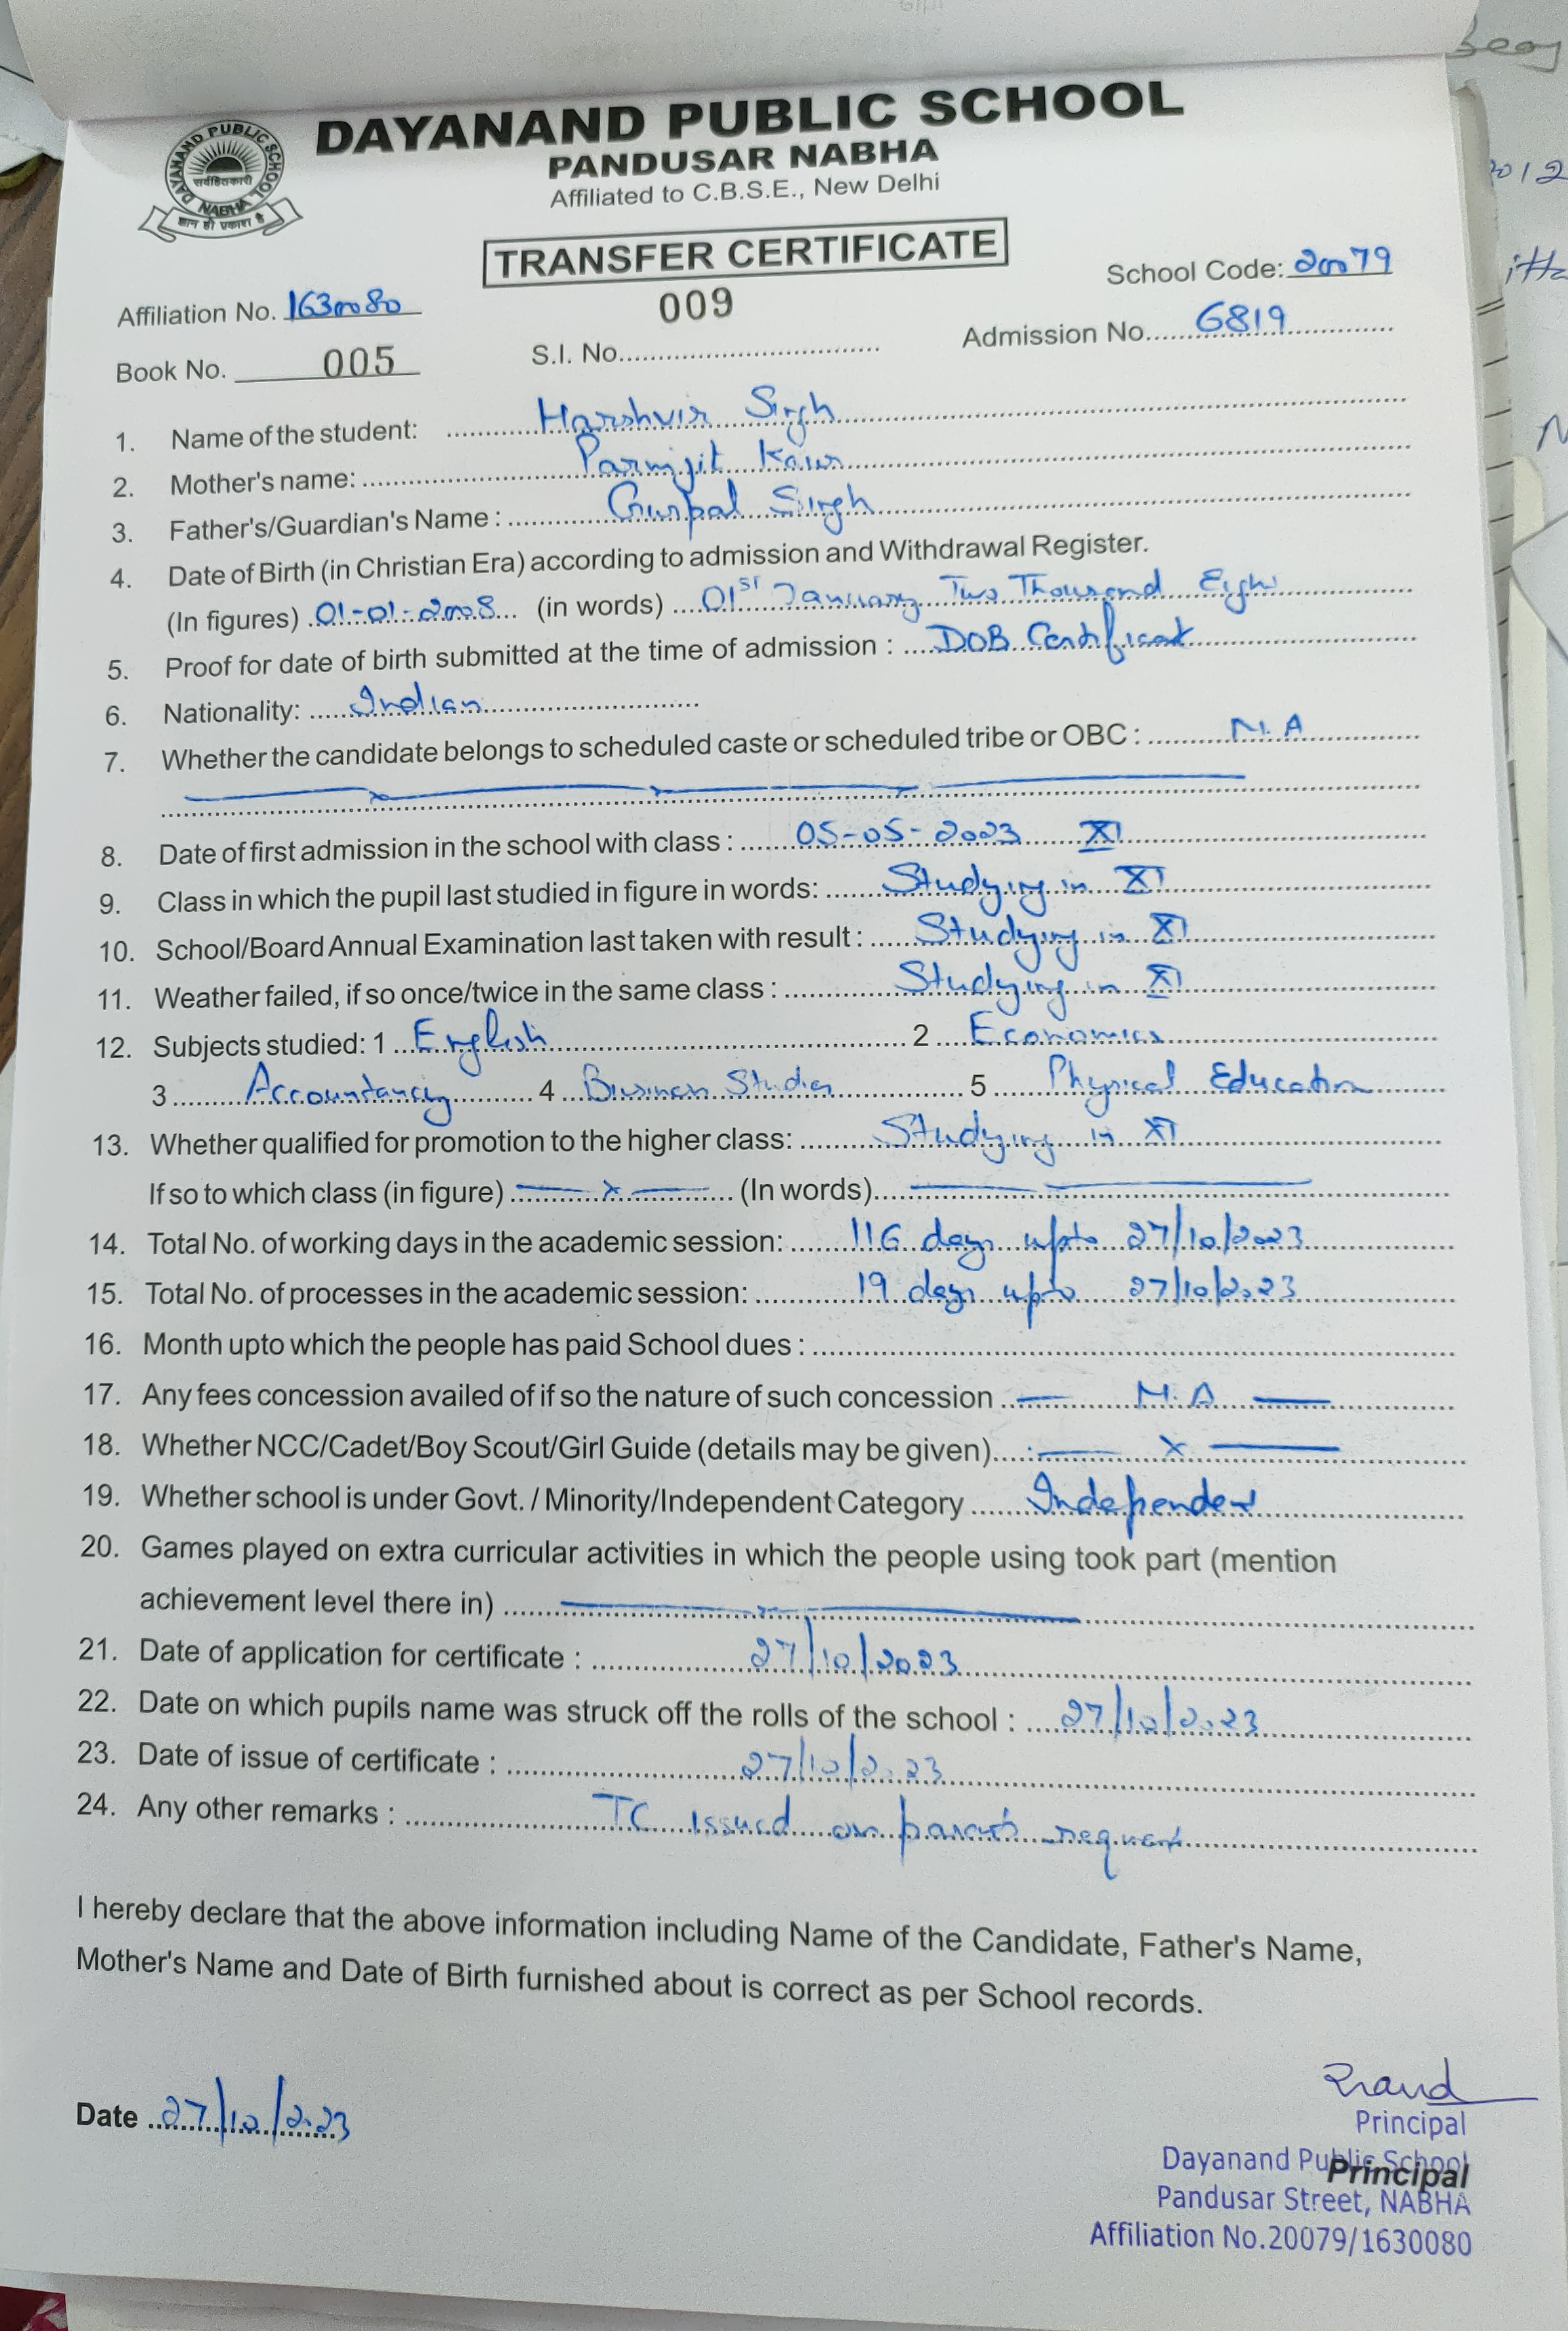 DAYANAND PUBLIC SCHOOL
PANDUSAR NABHA
Affiliated to C.B.S.E., New Delhi
DAYANAND PUBLIC SCHOOL
सर्वहितकारी
NABHA
ज्ञान ही प्रकाश है
TRANSFER CERTIFICATE
School Code: 20079
Affiliation No. 1630080
009
Book No. 005 S.I. No. Admission No. 6819
1. Name of the student: Harshvir Singh
2. Mother's name: Parmjit Kaur
3. Father's/Guardian's Name : Gurpal Singh
4. Date of Birth (in Christian Era) according to admission and Withdrawal Register.
(In figures) 01-01-2008 (in words) 01st January Two Thousand Eight
5. Proof for date of birth submitted at the time of admission : DOB Certificate
6. Nationality: Indian
7. Whether the candidate belongs to scheduled caste or scheduled tribe or OBC : N.A
8. Date of first admission in the school with class : 05-05-2023 XI
9. Class in which the pupil last studied in figure in words: Studying in XI
10. School/Board Annual Examination last taken with result : Studying in XI
11. Weather failed, if so once/twice in the same class : Studying in XI
12. Subjects studied: 1 English 2 Economics
3 Accountancy 4 Business Studies 5 Physical Education
13. Whether qualified for promotion to the higher class: Studying in XI
If so to which class (in figure) — x — (In words)
14. Total No. of working days in the academic session: 116 days upto 27/10/2023
15. Total No. of processes in the academic session: 19 days upto 27/10/2023
16. Month upto which the people has paid School dues :
17. Any fees concession availed of if so the nature of such concession — N.A —
18. Whether NCC/Cadet/Boy Scout/Girl Guide (details may be given) — x —
19. Whether school is under Govt. / Minority/Independent Category Independent
20. Games played on extra curricular activities in which the people using took part (mention
achievement level there in)
21. Date of application for certificate : 27/10/2023
22. Date on which pupils name was struck off the rolls of the school : 27/10/2023
23. Date of issue of certificate : 27/10/2023
24. Any other remarks : TC issued on parents request
I hereby declare that the above information including Name of the Candidate, Father's Name,
Mother's Name and Date of Birth furnished about is correct as per School records.
Date 27/10/2023
Principal
Dayanand Public School
Principal
Pandusar Street, NABHA
Affiliation No.20079/1630080